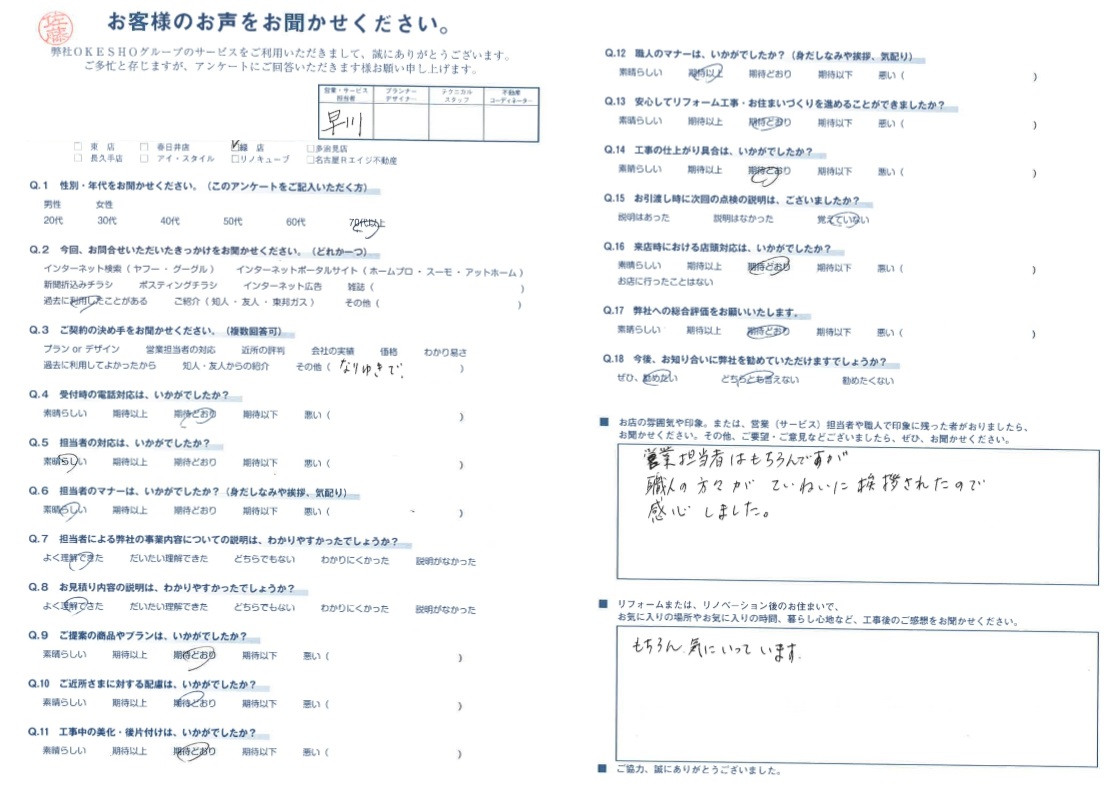 佐藤
お客様のお声をお聞かせください。
弊社OKESHOグループのサービスをご利用いただきまして、誠にありがとうございます。
ご多忙と存じますが、アンケートにご回答いただきます様お願い申し上げます。
営業・サービス担当者 プランナーデザイナー テクニカルスタッフ 不動産コーディネーター
早川
□ 東 店 □ 春日井店 ☑緑 店 □多治見店
□ 長久手店 □ アイ・スタイル □リノキューブ □名古屋Rエイジ不動産
Q.1 性別・年代をお聞かせください。（このアンケートをご記入いただく方）
男性 女性
20代 30代 40代 50代 60代 70代以上
Q.2 今回、お問合せいただいたきっかけをお聞かせください。（どれか一つ）
インターネット検索（ヤフー・グーグル） インターネットポータルサイト（ホームプロ・スーモ・アットホーム）
新聞折込みチラシ ポスティングチラシ インターネット広告 雑誌（ ）
過去に利用したことがある ご紹介（知人・友人・東邦ガス） その他（ ）
Q.3 ご契約の決め手をお聞かせください。（複数回答可）
プラン or デザイン 営業担当者の対応 近所の評判 会社の実績 価格 わかり易さ
過去に利用してよかったから 知人・友人からの紹介 その他（ なりゆきで. ）
Q.4 受付時の電話対応は、いかがでしたか？
素晴らしい 期待以上 期待どおり 期待以下 悪い（ ）
Q.5 担当者の対応は、いかがでしたか？
素晴らしい 期待以上 期待どおり 期待以下 悪い（ ）
Q.6 担当者のマナーは、いかがでしたか？（身だしなみや挨拶、気配り）
素晴らしい 期待以上 期待どおり 期待以下 悪い（ ）
Q.7 担当者による弊社の事業内容についての説明は、わかりやすかったでしょうか？
よく理解できた だいたい理解できた どちらでもない わかりにくかった 説明がなかった
Q.8 お見積り内容の説明は、わかりやすかったでしょうか？
よく理解できた だいたい理解できた どちらでもない わかりにくかった 説明がなかった
Q.9 ご提案の商品やプランは、いかがでしたか？
素晴らしい 期待以上 期待どおり 期待以下 悪い（ ）
Q.10 ご近所さまに対する配慮は、いかがでしたか？
素晴らしい 期待以上 期待どおり 期待以下 悪い（ ）
Q.11 工事中の美化・後片付けは、いかがでしたか？
素晴らしい 期待以上 期待どおり 期待以下 悪い（ ）
Q.12 職人のマナーは、いかがでしたか？（身だしなみや挨拶、気配り）
素晴らしい 期待以上 期待どおり 期待以下 悪い（ ）
Q.13 安心してリフォーム工事・お住まいづくりを進めることができましたか？
素晴らしい 期待以上 期待どおり 期待以下 悪い（ ）
Q.14 工事の仕上がり具合は、いかがでしたか？
素晴らしい 期待以上 期待どおり 期待以下 悪い（ ）
Q.15 お引渡し時に次回の点検の説明は、ございましたか？
説明はあった 説明はなかった 覚えていない
Q.16 来店時における店頭対応は、いかがでしたか？
素晴らしい 期待以上 期待どおり 期待以下 悪い（ ）
お店に行ったことはない
Q.17 弊社への総合評価をお願いいたします。
素晴らしい 期待以上 期待どおり 期待以下 悪い（ ）
Q.18 今後、お知り合いに弊社を勧めていただけますでしょうか？
ぜひ、勧めたい どちらとも言えない 勧めたくない
■ お店の雰囲気や印象。または、営業（サービス）担当者や職人で印象に残った者がおりましたら、
お聞かせください。その他、ご要望・ご意見などございましたら、ぜひ、お聞かせください。
営業担当者はもちろんですが
職人の方々が ていねいに挨拶されたので
感心しました。
■ リフォームまたは、リノベーション後のお住まいで、
お気に入りの場所やお気に入りの時間、暮らし心地など、工事後のご感想をお聞かせください。
もちろん.気にいっています.
■ ご協力、誠にありがとうございました。